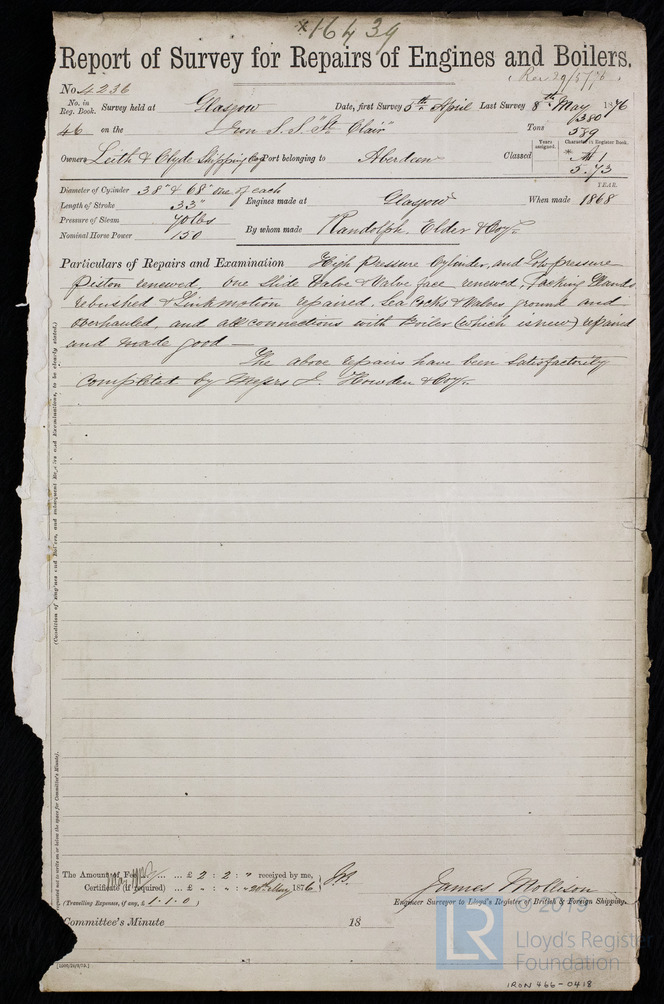 *16439
Report of Survey for Repairs of Engines and Boilers.
Rec 29/5/76
No. 4236
No. in Reg. Book. Survey held at Glasgow Date, first Survey 5th April Last Survey 8th May 1876
46 on the Iron S.S. "St Clair" Tons 380
589
Owners Leith & Clyde Shipping Coy Port belonging to Aberdeen Classed Years assigned. Character in Register Book.
A 1
5.73
Diameter of Cylinder 38" & 68" one of each
YEAR.
Length of Stroke 33" Engines made at Glasgow When made 1868
Pressure of Steam 70 lbs
Nominal Horse Power 150 By whom made Randolph, Elder & Coy
Particulars of Repairs and Examination High Pressure Cylinder, and Low pressure
Piston renewed, one Slide Valve & Valve face renewed, Packing Glands
rebushed & Link motion repaired, Sea Cocks & Valves ground and
overhauled, and all connections with Boiler (which is new) repaired
and made good —
The above repairs have been Satisfactorily
completed by Messrs J. Howden & Coy.
(Condition of Engines and Boilers, and subsequent Repairs and Examinations, to be clearly stated.)
requested not to write on or below the space for Committee's Minute).
The Amount of Fee ... £ 2 : 2 : " received by me,
Certificate (if required) ... £ - : - : " 20th May 1876
(Travelling Expenses, if any, £ 1.1.0)
James Mollison
Engineer Surveyor to Lloyd's Register of British & Foreign Shipping.
Committee's Minute 18
© 2019
LR
Lloyd's Register
Foundation
IRON 466-0418